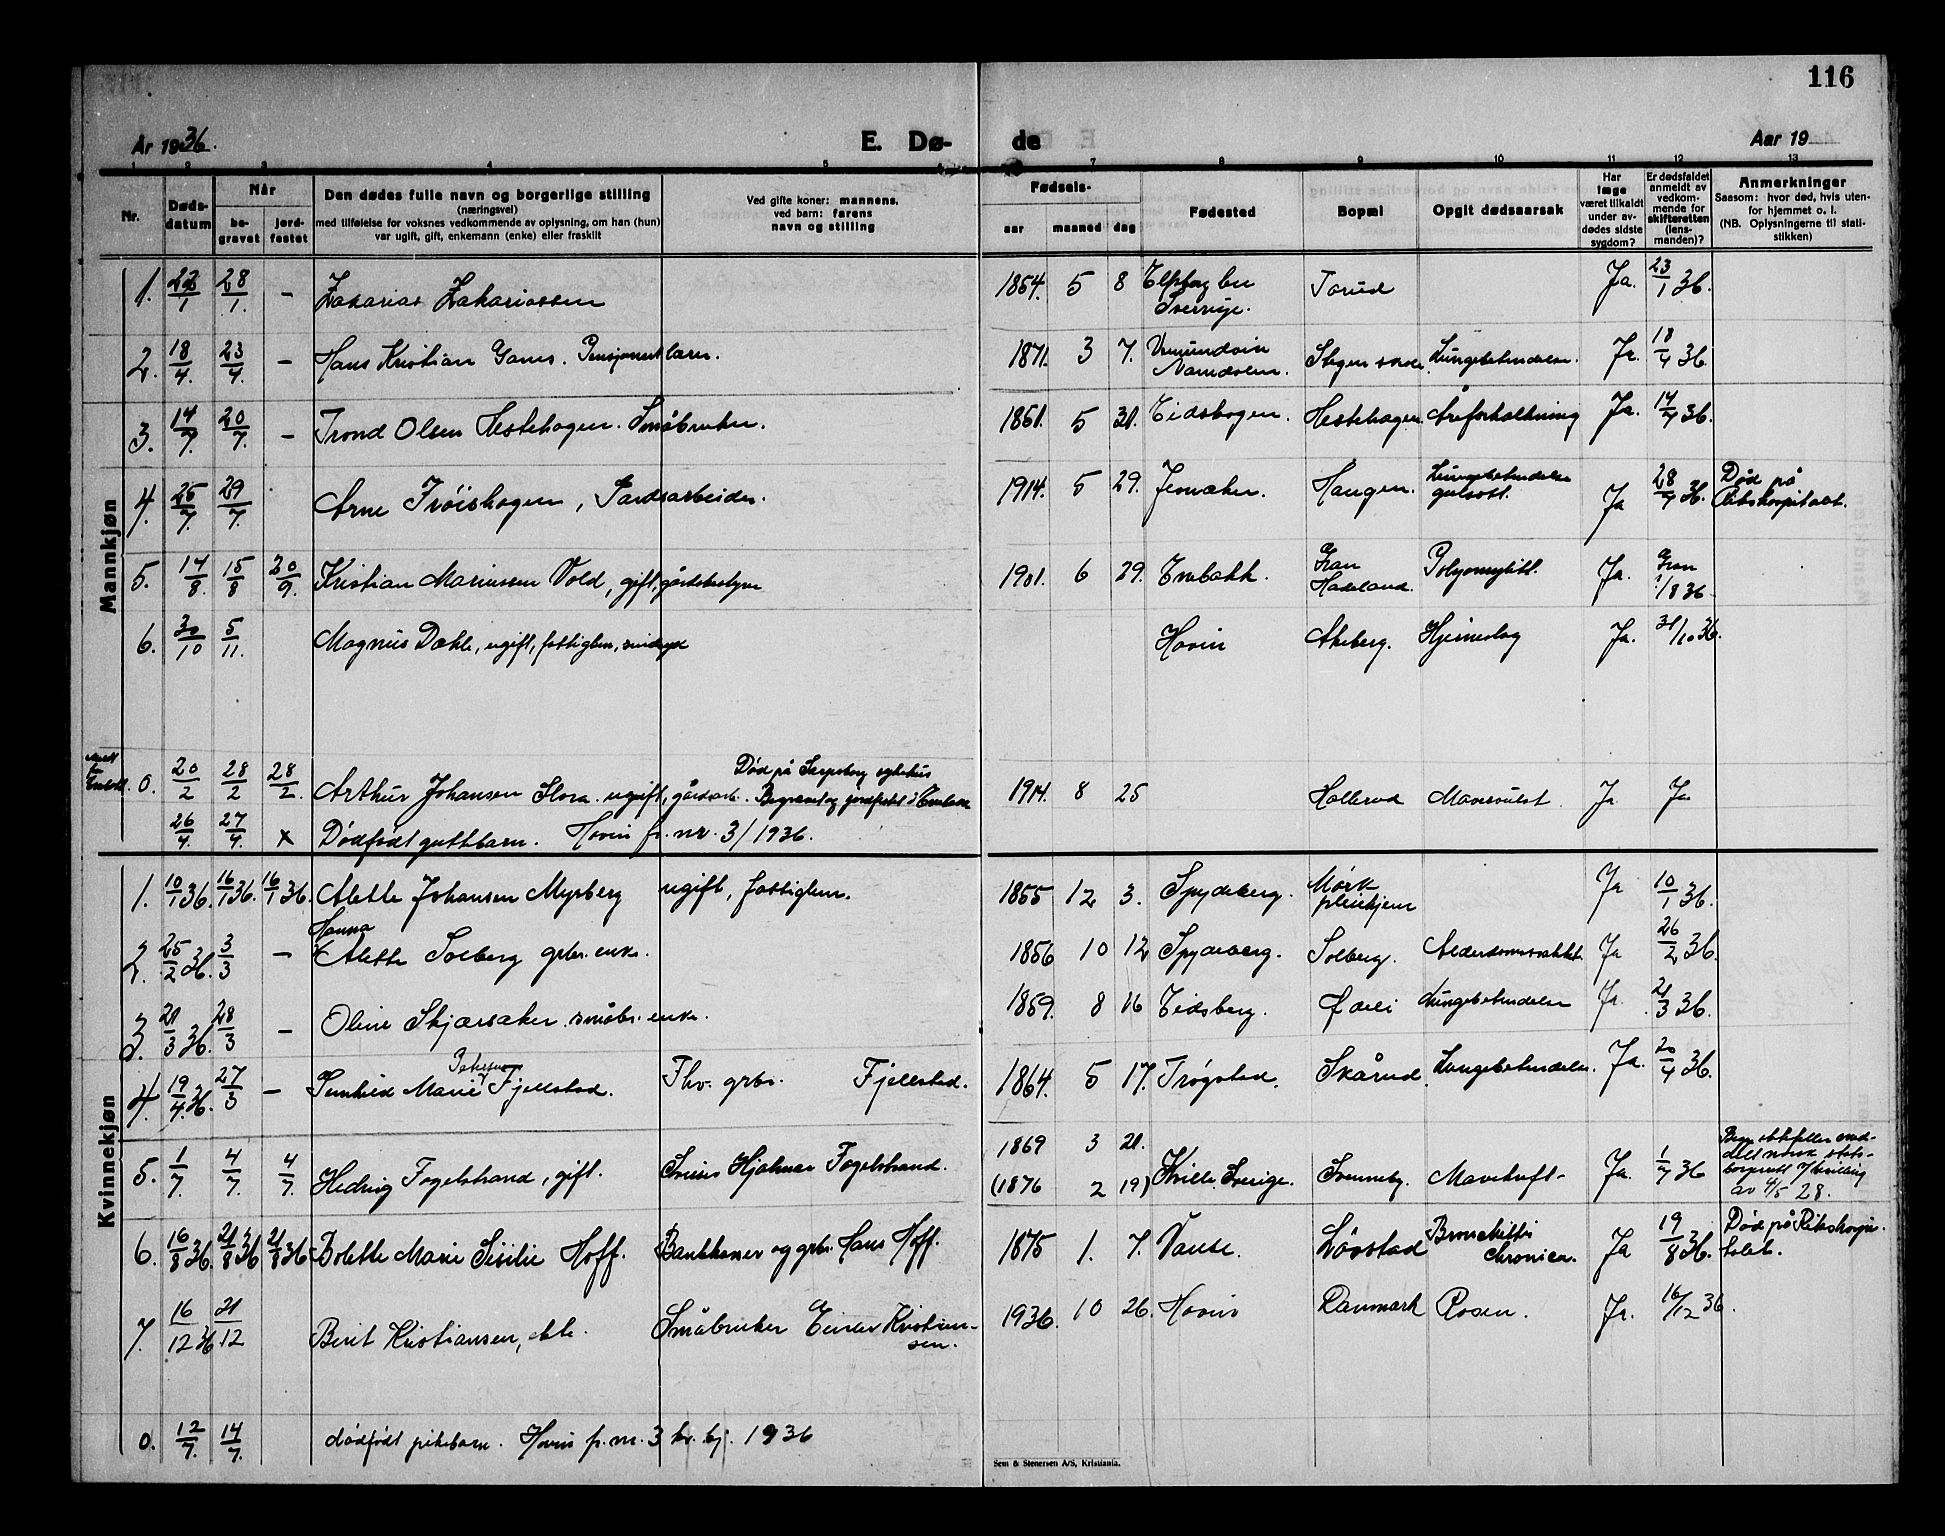 116
År 1936.
E. Dø-
de
Aar 19
1 2 3 4 5 6 7 8 9 10 11 12 13
Nr.
Døds-
datum
Når
be-
gravet
jord-
festet
Den dødes fulle navn og borgerlige stilling
(næringsvei)
med tilføielse for voksnes vedkommende av oplysning, om han (hun)
var ugift, gift, enkemann (enke) eller fraskilt
Ved gifte koner: mannens,
ved barn: farens
navn og stilling
Fødsels-
aar maaned dag
Fødested
Bopæl
Opgit dødsaarsak
Har
læge
været tilkaldt
under av-
dødes sidste
sygdom?
Er dødsfaldet
anmeldt av
vedkom-
mende for
skifteretten
(lens-
manden)?
Anmerkninger
Saasom: hvor død, hvis uten-
for hjemmet o. l.
(NB. Oplysningerne til stati-
stikken)
Mannkjøn
1. 22/1 28/1. – Zakarias Zakariassen 1854. 5 8 Torud Ja. 23/1 36.
2. 18/4. 23/4. – Hans Kristian 1871. 3 7. Namdalen. Lungebetendelse. Ja. 18/4 36
3. 14/7. 20/7. – Trond Olsen Hestehagen. Småbruker. 1851. 5 31. Eidskogen. Hestehagen. Åreforkalkning Ja. 14/7 36.
4. 25/7. 29/7. – Arne Trøishagen, Gårdsarbeider. 1914. 5 29. Jevnaker. Haugen. Lungebetendelse
gulsott. Ja 28/7 36. Død på
Rikshospitalet.
5. 14/8. 15/8 20/9. Kristian Mariussen Vold, gift, gårdsbestyrer 1901. 6 29. Enebakk. Gran
Hadeland. Polyomyelitt. Ja. Gran
1/8 36
6. 30/10 5/11. Magnus Dæhle, ugift, fattiglem, Hovin Akeberg. Hjerneslag Ja. 31/10 36.
0. 20/2 28/2 28/2. Arthur Johansen Slora. ugift, gårdsarb. Død på Sarpsborg sykehus
Begravet og jordfestet i Enebakk 1914. 8 25 Hallerud Mavesvulst. Ja Ja
26/4. 27/4. x Dødfødt guttbarn. Hovin fr. nr. 3/1936.
Kvinnekjøn
1. 10/1 36. 16/1 36. 16/1 36 Alette Johansen Myrberg ugift, fattiglem. 1855 12 3. Spydeberg. Mørk
pleiehjem Ja 10/1 36.
Hanna
2. 25/2 36. 3/3 – Alette Solberg grbr. enke. 1856 10 12 Spydeberg. Solberg. Alderdomssvakhet Ja 26/2 36.
3. 21/3 36. 28/3 – Oline Skjærsaker småbr. enke. 1859. 8 16 Eidsberg. Lungebetendelse Ja. 21/3 36.
Petersen
4. 19/4 36. 27/3 – Marie Fjellstad. Thv. grbr. Fjellstad. 1864. 5 17. Trøgstad. Skårud. Lungebetendelse. Ja. 20/4 36.
5. 1/7. 4/7. 4/7. Hedvig Fogelstrand, gift. Hjalmar Fogelstrand. 1869 3 21.
(1876 2 19) Kville. Sverige. Svenneby. Mavekreft – Ja. 1/7 36
av 4/5 28.
6. 16/8 36. 21/8 36 21/8 36 Bolette Marie Sisilie Hoff. Bankkasser og grbr. Hans Hoff. 1875 1. 7. Vanse. Løvstad Bronchitis
chronica. Ja 19/8 36. Død på Rikshospi-
talet.
7. 16/12 36 21/12 Berit Kristiansen, ekte. Småbruker Einar Kristian-
sen. 1936. 10 26. Hovin Danmark Rosen. Ja. 16/12 36.
0. 12/7. 14/7. dødfødt pikebarn. Hovin fr. nr. 3 kv. kj. 1936
Sem & Stenersen A/S, Kristiania.